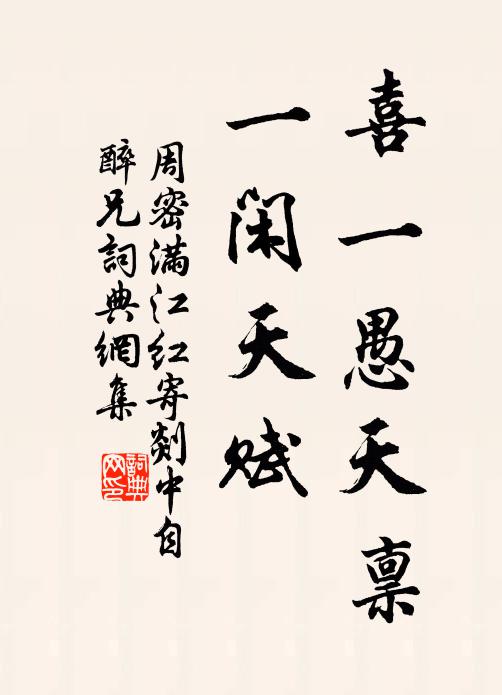 喜一愚天禀
一闲天赋
周密满江红寄剡中自
醉兄詞典網集
詞典網印